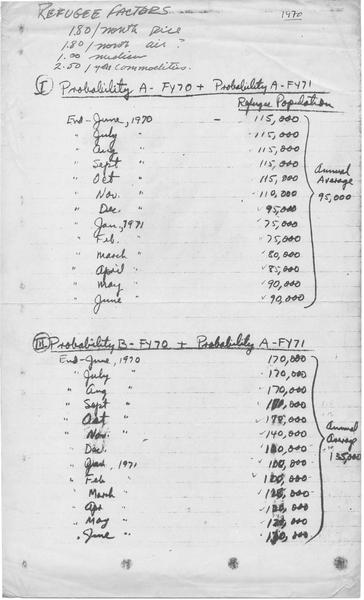 REFUGEE FACTORS
1970
1.80/month rice
1.80/month air?
1.00 medicine
2.50/yr commodities.
I Probability A - FY70 + Probability A - FY71
Refugee Population
End - June, 1970 - 115,000
" July " 115,000
" Aug " 115,000
" Sept " 115,000
" Oct " 115,000
" Nov. " 110,000
" Dec. " 95,000
" Jan, 1971 75,000
" Feb. " 75,000
" March " 80,000
" April " 85,000
" May " 90,000
" June " 90,000
Annual
Average
95,000
II Probability B - FY70 + Probability A - FY71
End - June, 1970 170,000
" July " 170,000
" Aug " 170,000
" Sept "
" Oct "
" Nov. " 140,000
" Dec. "
" Jan, 1971
" Feb "
" March "
" Apr "
" May "
" June "
Annual
Average
135,000